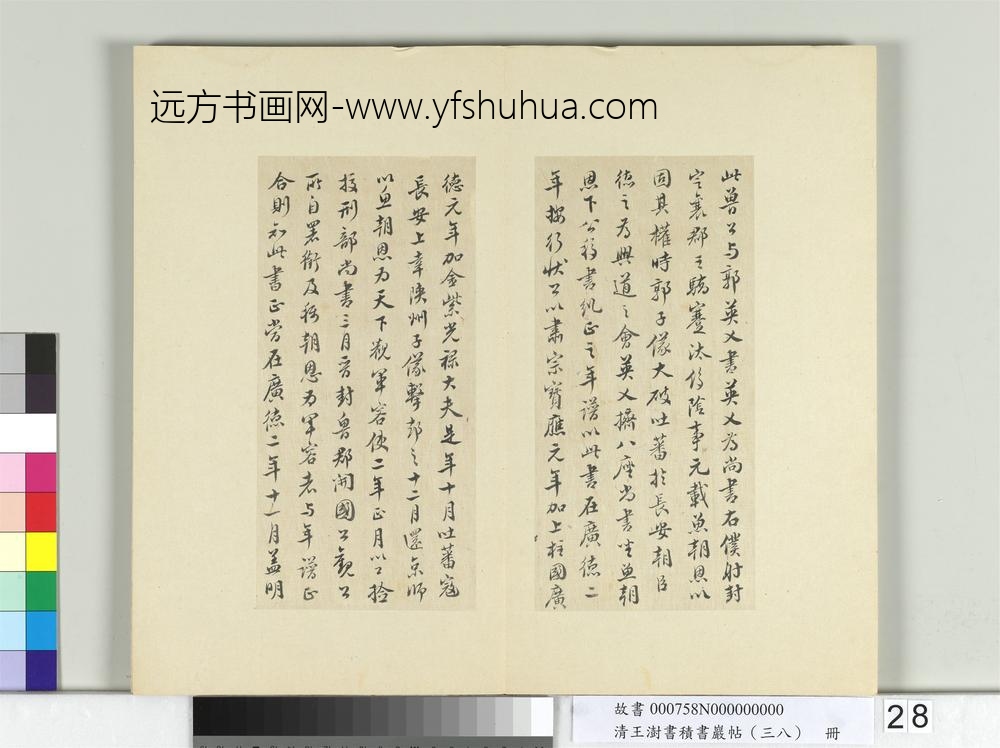 远方书画网-www.yfshuhua.com
此魯公与郭英乂書英乂为尚書右僕射封
定襄郡王驕蹇汰侈陰事元載魚朝恩以
固其權時郭子儀大破吐蕃於長安朝臣
德之为興道之會英乂擠八座尚書坐魚朝
恩下公移書糾正之年譜以此書在廣德二
年按行狀公以肅宗寶應元年加上柱國廣
德元年加金紫光祿大夫是年十月吐蕃寇
長安上幸陝州子儀擊却之十二月還京師
以魚朝恩为天下觀軍容使二年正月以公檢
挍刑部尚書三月晉封魯郡開國公觀公
所自署銜及稱朝恩为軍容者与年譜正
合則知此書正當在廣德二年十一月蓋明
故書 000758N000000000
清王澍書積書巖帖（三八） 冊
28